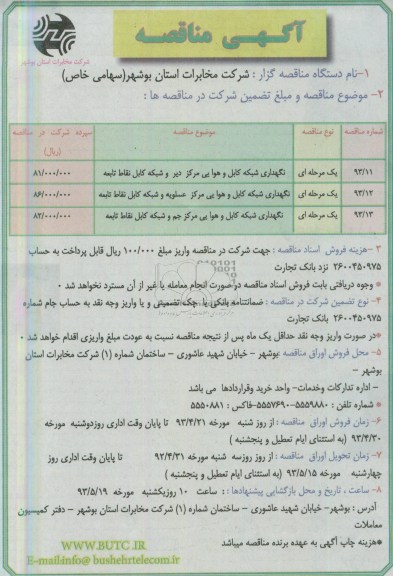 آگهی مناقصه
شرکت مخابرات استان بوشهر
۱-نام دستگاه مناقصه گزار : شرکت مخابرات استان بوشهر(سهامی خاص)
۲- موضوع مناقصه و مبلغ تضمین شرکت در مناقصه ها :
شماره مناقصه نوع مناقصه موضوع مناقصه سپرده شرکت در مناقصه (ریال)
۹۳/۱۱ یک مرحله ای نگهداری شبکه کابل و هوایی مرکز دیر و شبکه کابل نقاط تابعه ۸۱/۰۰۰/۰۰۰
۹۳/۱۲ یک مرحله ای نگهداری شبکه کابل و هوایی مرکز عسلویه و شبکه کابل نقاط تابعه ۸۶/۰۰۰/۰۰۰
۹۳/۱۳ یک مرحله ای نگهداری شبکه کابل و هوایی مرکز جم و شبکه کابل نقاط تابعه ۸۲/۰۰۰/۰۰۰
۳-هزینه فروش اسناد مناقصه : جهت شرکت در مناقصه واریز مبلغ ۱۰۰/۰۰۰ ریال قابل پرداخت به حساب
۲۶۰۰۴۵۰۹۷۵ نزد بانک تجارت
* وجوه دریافتی بابت فروش اسناد مناقصه در صورت انجام معامله یا غیر از آن مسترد نخواهد شد .
۴- نوع تضمین شرکت در مناقصه : ضمانتنامه بانکی یا چک تضمینی و یا واریز وجه نقد به حساب جام شماره
۲۶۰۰۴۵۰۹۷۵ بانک تجارت
*در صورت واریز وجه نقد حداقل یک ماه پس از نتیجه مناقصه نسبت به عودت مبلغ واریزی اقدام خواهد شد .
۵- محل فروش اوراق مناقصه :بوشهر - خیابان شهید عاشوری - ساختمان شماره (۱) شرکت مخابرات استان
بوشهر -
- اداره تدارکات وخدمات- واحد خرید وقراردادها می باشد
* شماره تلفن : ۵۵۵۹۸۸۰-۵۵۵۷۶۹۰-فاکس : ۵۵۵۰۸۸۱
۶- زمان فروش اوراق مناقصه : از روز شنبه مورخه ۹۳/۴/۲۱ تا پایان وقت اداری روزدوشنبه مورخه
۹۳/۴/۳۰ (به استثنای ایام تعطیل و پنجشنبه )
۷- زمان تحویل اوراق مناقصه : از روز سه شنبه مورخه ۹۳/۴/۳۱ تا پایان وقت اداری روز
چهارشنبه مورخه ۹۳/۵/۱۵ (به استثنای ایام تعطیل و پنجشنبه )
۸- ساعت ، تاریخ و محل بازگشایی پیشنهادها : : ساعت ۱۰ روزیکشنبه مورخه ۹۳/۵/۱۹
آدرس : بوشهر- خیابان شهید عاشوری - ساختمان شماره (۱) شرکت مخابرات استان بوشهر - دفتر کمیسیون
معاملات
*هزینه چاپ آگهی به عهده برنده مناقصه میباشد
WWW.BUTC.IR
E-mail:info@bushehrtelecom.ir